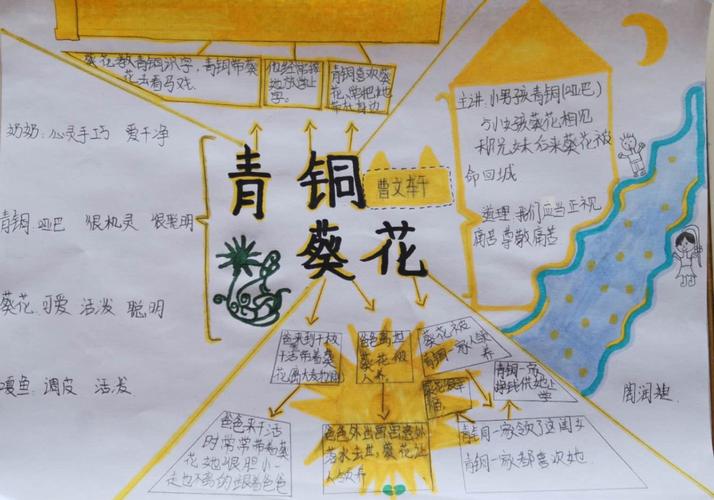 葵花教青铜识字，青铜带葵
花去看马戏.
他经常接
她放学上
学。
青铜喜欢葵
花,常把她
带在身边
主讲:小男孩青铜(哑巴)
与小女孩葵花相见
却兄妹后来葵花被
命回城
道理:我们应当正视
痛苦尊敬痛苦
奶奶:心灵手巧 爱干净
青铜:哑巴 很机灵 很聪明
葵花:可爱 活泼 聪明
嘎鱼:调皮 活泼
青铜
葵花
曹文轩
爸来到干校
干活带着葵
爸爸离世
葵花被
人养.
葵花被
青铜一家人领
养
青铜一家
供她上
学
爸爸来干活
时常常带着葵
花她很胆小一
走也不离的跟着爸爸
爸爸外出画画意外
落水去世,葵花让
人领养
青铜一家领了这闺女
青铜一家都喜欢她
周润雅